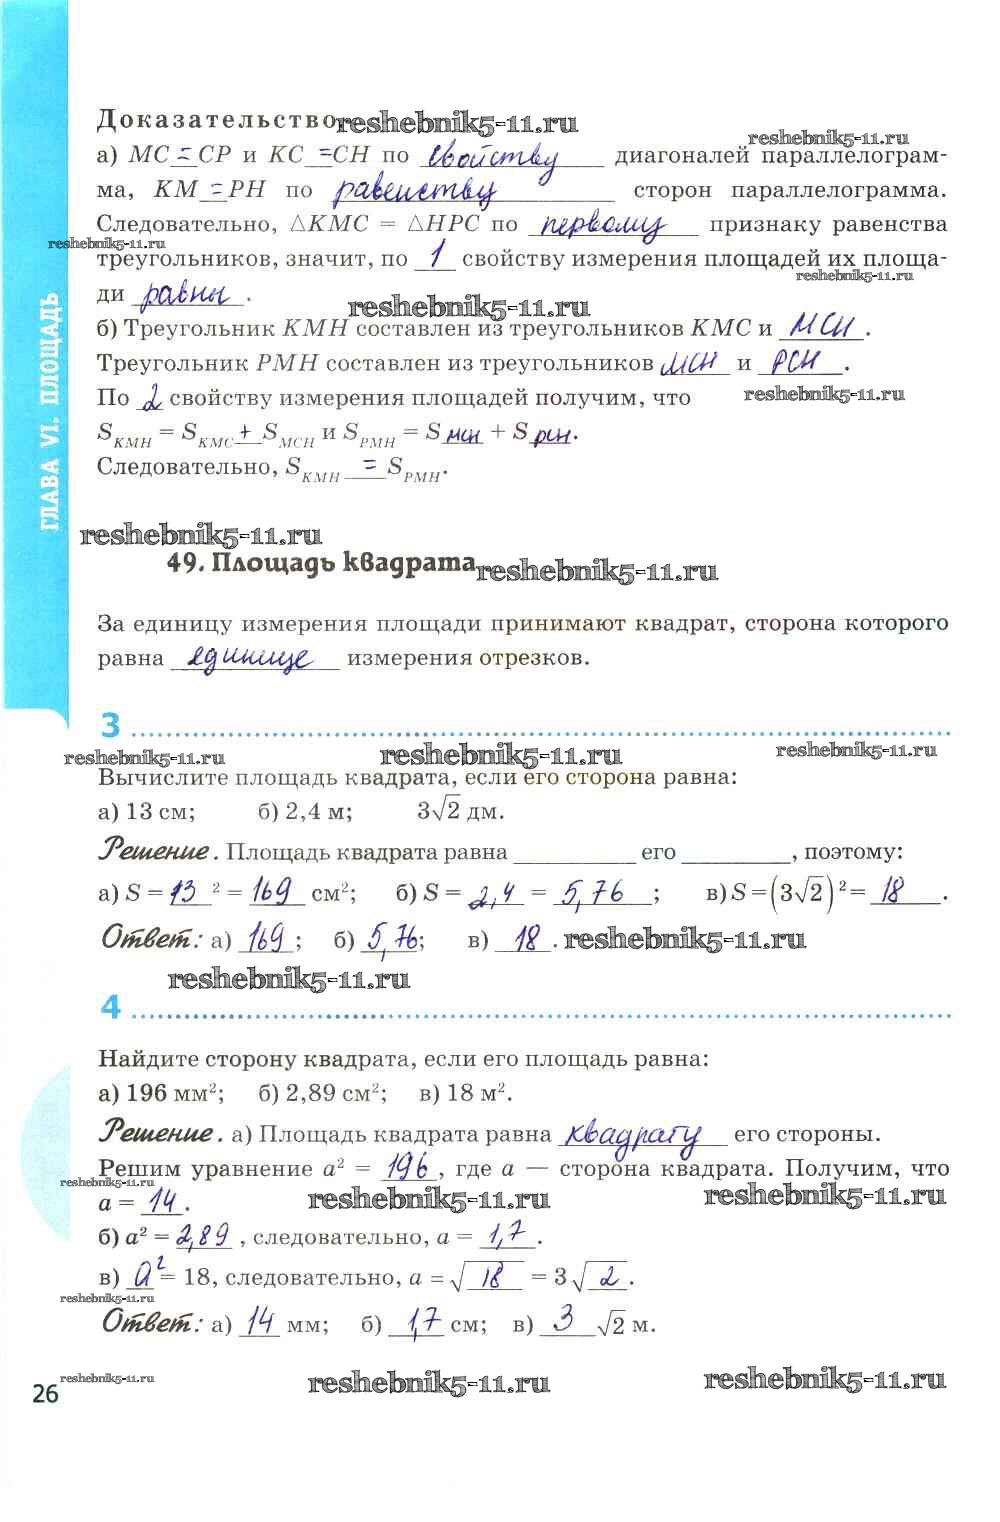 Доказательство reshebnik5-11.ru
reshebnik5-11.ru
а) MC = CP и KC = CH по свойству диагоналей параллелограм-
ма, KM = PH по равенству сторон параллелограмма.
Следовательно, △KMC = △HPC по первому признаку равенства
reshebnik5-11.ru
треугольников, значит, по 1 свойству измерения площадей их площа-
reshebnik5-11.ru
ди равны.
reshebnik5-11.ru
б) Треугольник KMH составлен из треугольников KMC и MCH.
Треугольник PMH составлен из треугольников MCH и PCH.
По 2 свойству измерения площадей получим, что
reshebnik5-11.ru
S_KMH = S_KMC + S_MCH и S_PMH = S_MCH + S_PCH.
Следовательно, S_KMH = S_PMH.
ГЛАВА VI. ПЛОЩАДЬ
reshebnik5-11.ru
49. Площадь квадрата reshebnik5-11.ru
За единицу измерения площади принимают квадрат, сторона которого
равна единице измерения отрезков.
3
reshebnik5-11.ru reshebnik5-11.ru reshebnik5-11.ru
Вычислите площадь квадрата, если его сторона равна:
а) 13 см; б) 2,4 м; 3√2 дм.
Решение. Площадь квадрата равна ________ его ________, поэтому:
а) S = 13² = 169 см²; б) S = 2,4 = 5,76; в) S = (3√2)² = 18.
Ответ: а) 169; б) 5,76; в) 18. reshebnik5-11.ru
reshebnik5-11.ru
4
Найдите сторону квадрата, если его площадь равна:
а) 196 мм²; б) 2,89 см²; в) 18 м².
Решение. а) Площадь квадрата равна квадрату его стороны.
Решим уравнение a² = 196, где a — сторона квадрата. Получим, что
reshebnik5-11.ru
a = 14. reshebnik5-11.ru reshebnik5-11.ru
б) a² = 2,89, следовательно, a = 1,7.
в) a² = 18, следовательно, a = √18 = 3√2.
reshebnik5-11.ru
Ответ: а) 14 мм; б) 1,7 см; в) 3√2 м.
26 reshebnik5-11.ru reshebnik5-11.ru reshebnik5-11.ru